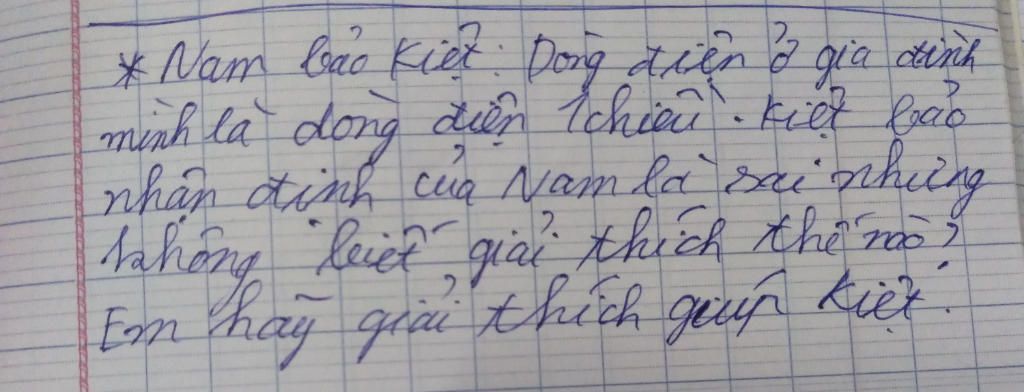 * Nam bảo Kiệt: Dòng điện ở gia đình
mình là dòng điện 1 chiều. Kiệt bảo
nhận định của Nam là sai nhưng
không biết giải thích thế nào?
Em hãy giải thích giúp Kiệt.